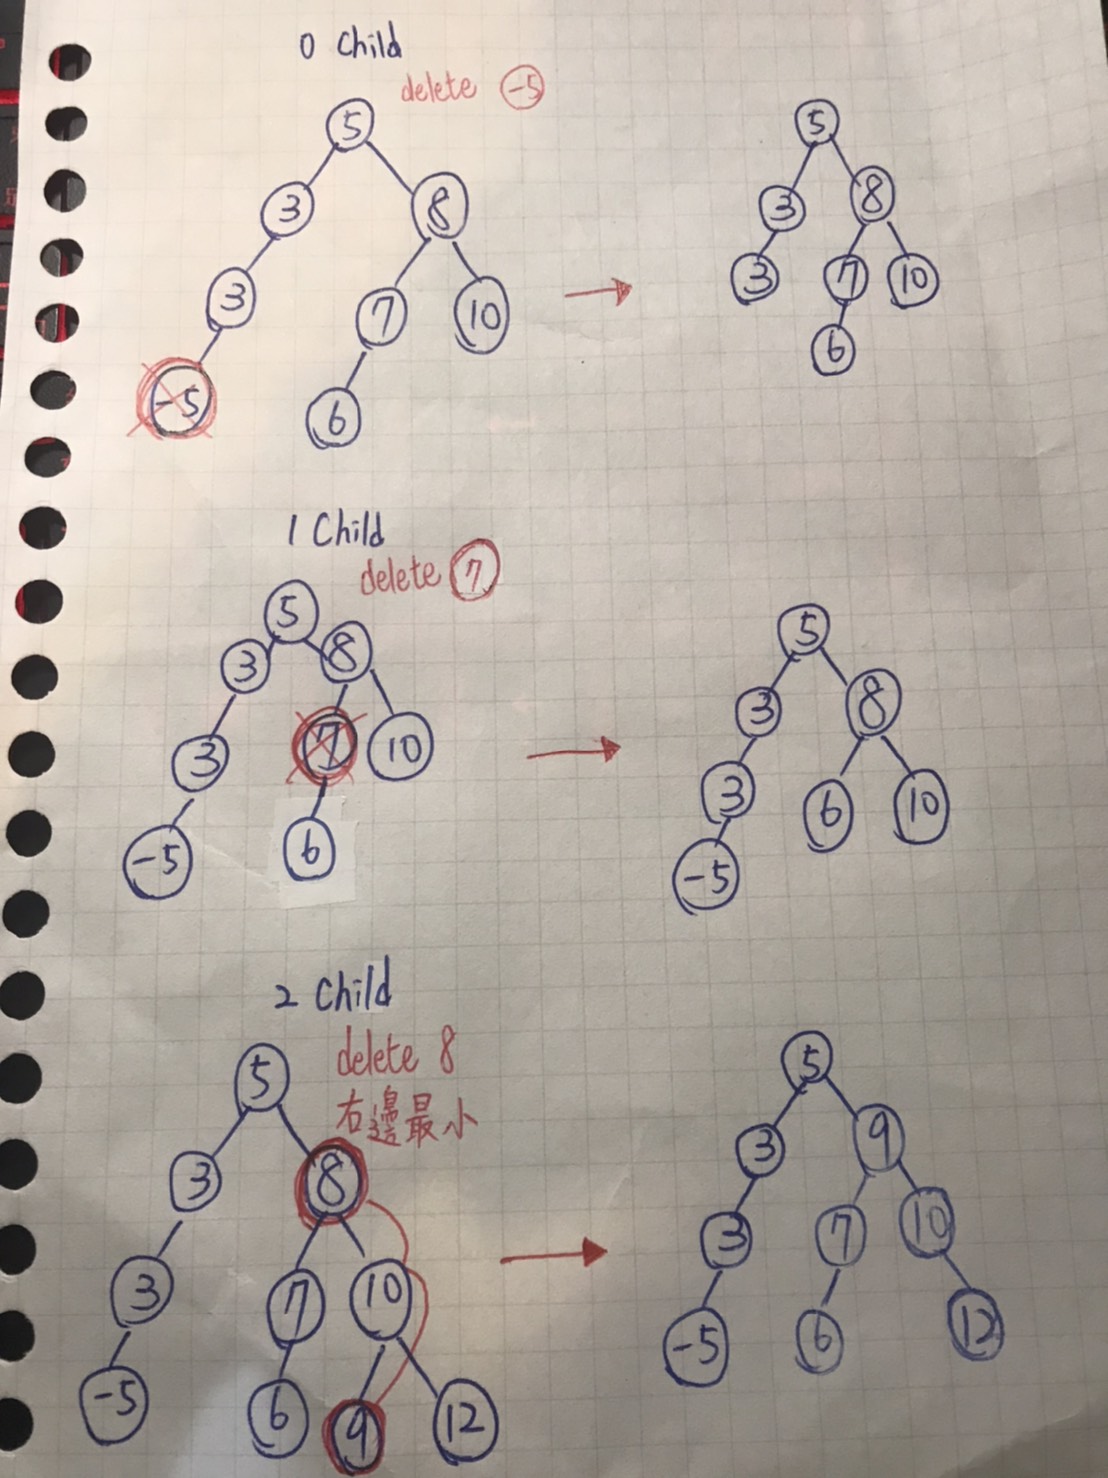 0 Child
delete -5
5
3 8
3 7 10
-5 6
5
3 8
3 7 10
6
1 Child
delete 7
5
3 8
3 7 10
-5 6
5
3 8
3 6 10
-5
2 Child
delete 8
右邊最小
5
3 8
3 7 10
-5 6 9 12
5
3 9
3 7 10
-5 6 12